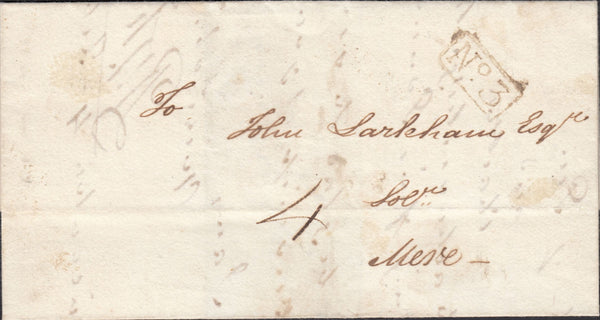 No. 3
To
John Larkham Esqr
Solr
4
Mere